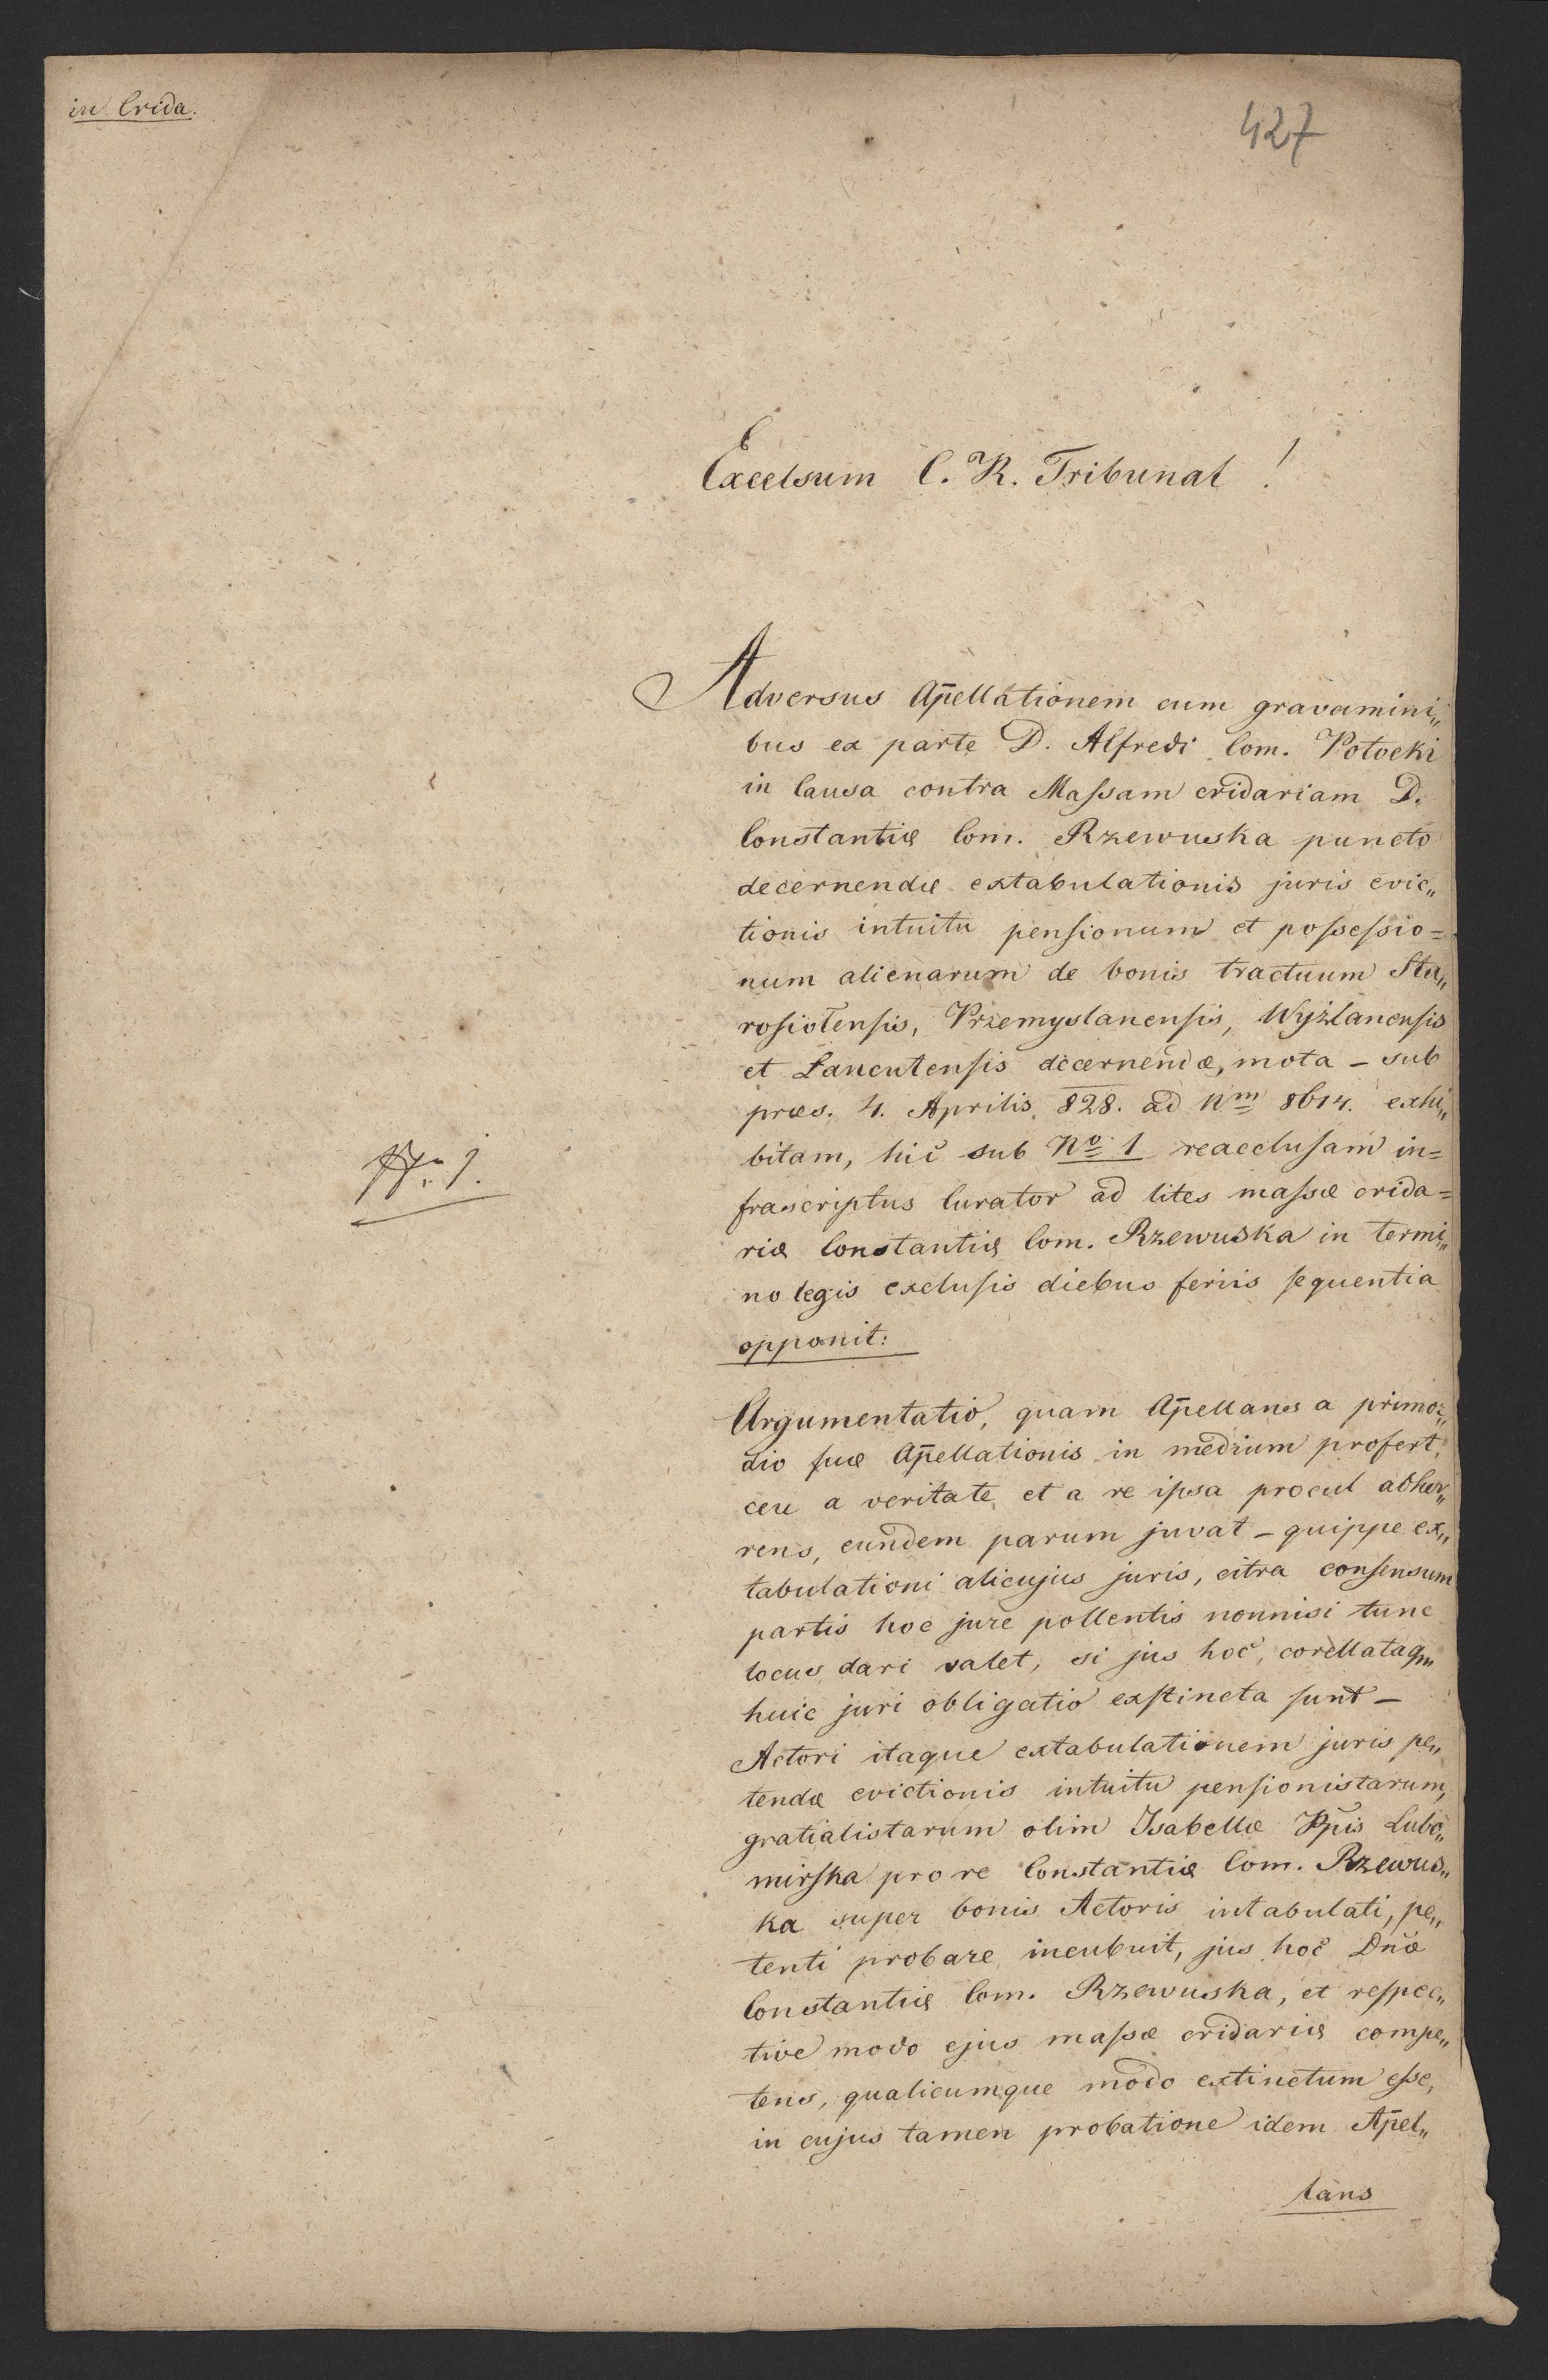 in Crida.
427
Excelsum C. R. Tribunal !
Adversus Apellationem cum gravamini„
bus ex parte D. Alfredi Com. Potocki
in Causa contra Maſsam cridariam D.
Constantiæ Com. Rzewuska puncto
decernendæ extabulationis juris evic„
tionis intuitu penſionum et poſseſsio=
num alienarum de bonis tractuum Sta„
roſiotenſis, Przemyslanenſis, Wyżlanenſis
et Łancutenſis decernendæ, mota – sub
præs. 4. Aprilis 828. ad Nm 8614. exhi„
bitam, hic sub No 1 reaccluſam in=
Nr. 1.
frascriptus Curator ad lites maſsæ crida=
riæ Constantiæ Com. Rzewuska in termi„
no legis excluſis diebus feriis ſequentia
opponit:
Argumentatio, quam Apellans a primor„
dio ſuæ Apellationis in medium profert,
ceu a veritate et a re ipsa procul abhor„
rens, eundem parum juvat – quippe ex„
tabulationi alicujus juris, citra conſensum
partis hoc jure pollentis nonnisi tunc
locus dari valet, si jus hoc, corellataq„
huic juri obligatio exſtincta ſunt –
Actori itaque extabulationem juris pe„
tendæ evictionis intuitu penſionistarum,
gratialistarum olim Isabellæ Ppis Lubo„
mirſka pro re Constantiæ Com. Rzewus„
ka super bonis Actoris intabulati, pe„
tenti probare incubuit, jus hoc Dnæ
Constantiæ Com. Rzewuska, et reſpec„
tive modo ejus maſsæ cridariæ compe„
tens, qualicumque modo extinctum eſse,
in cujus tamen probatione idem Apel„
lans